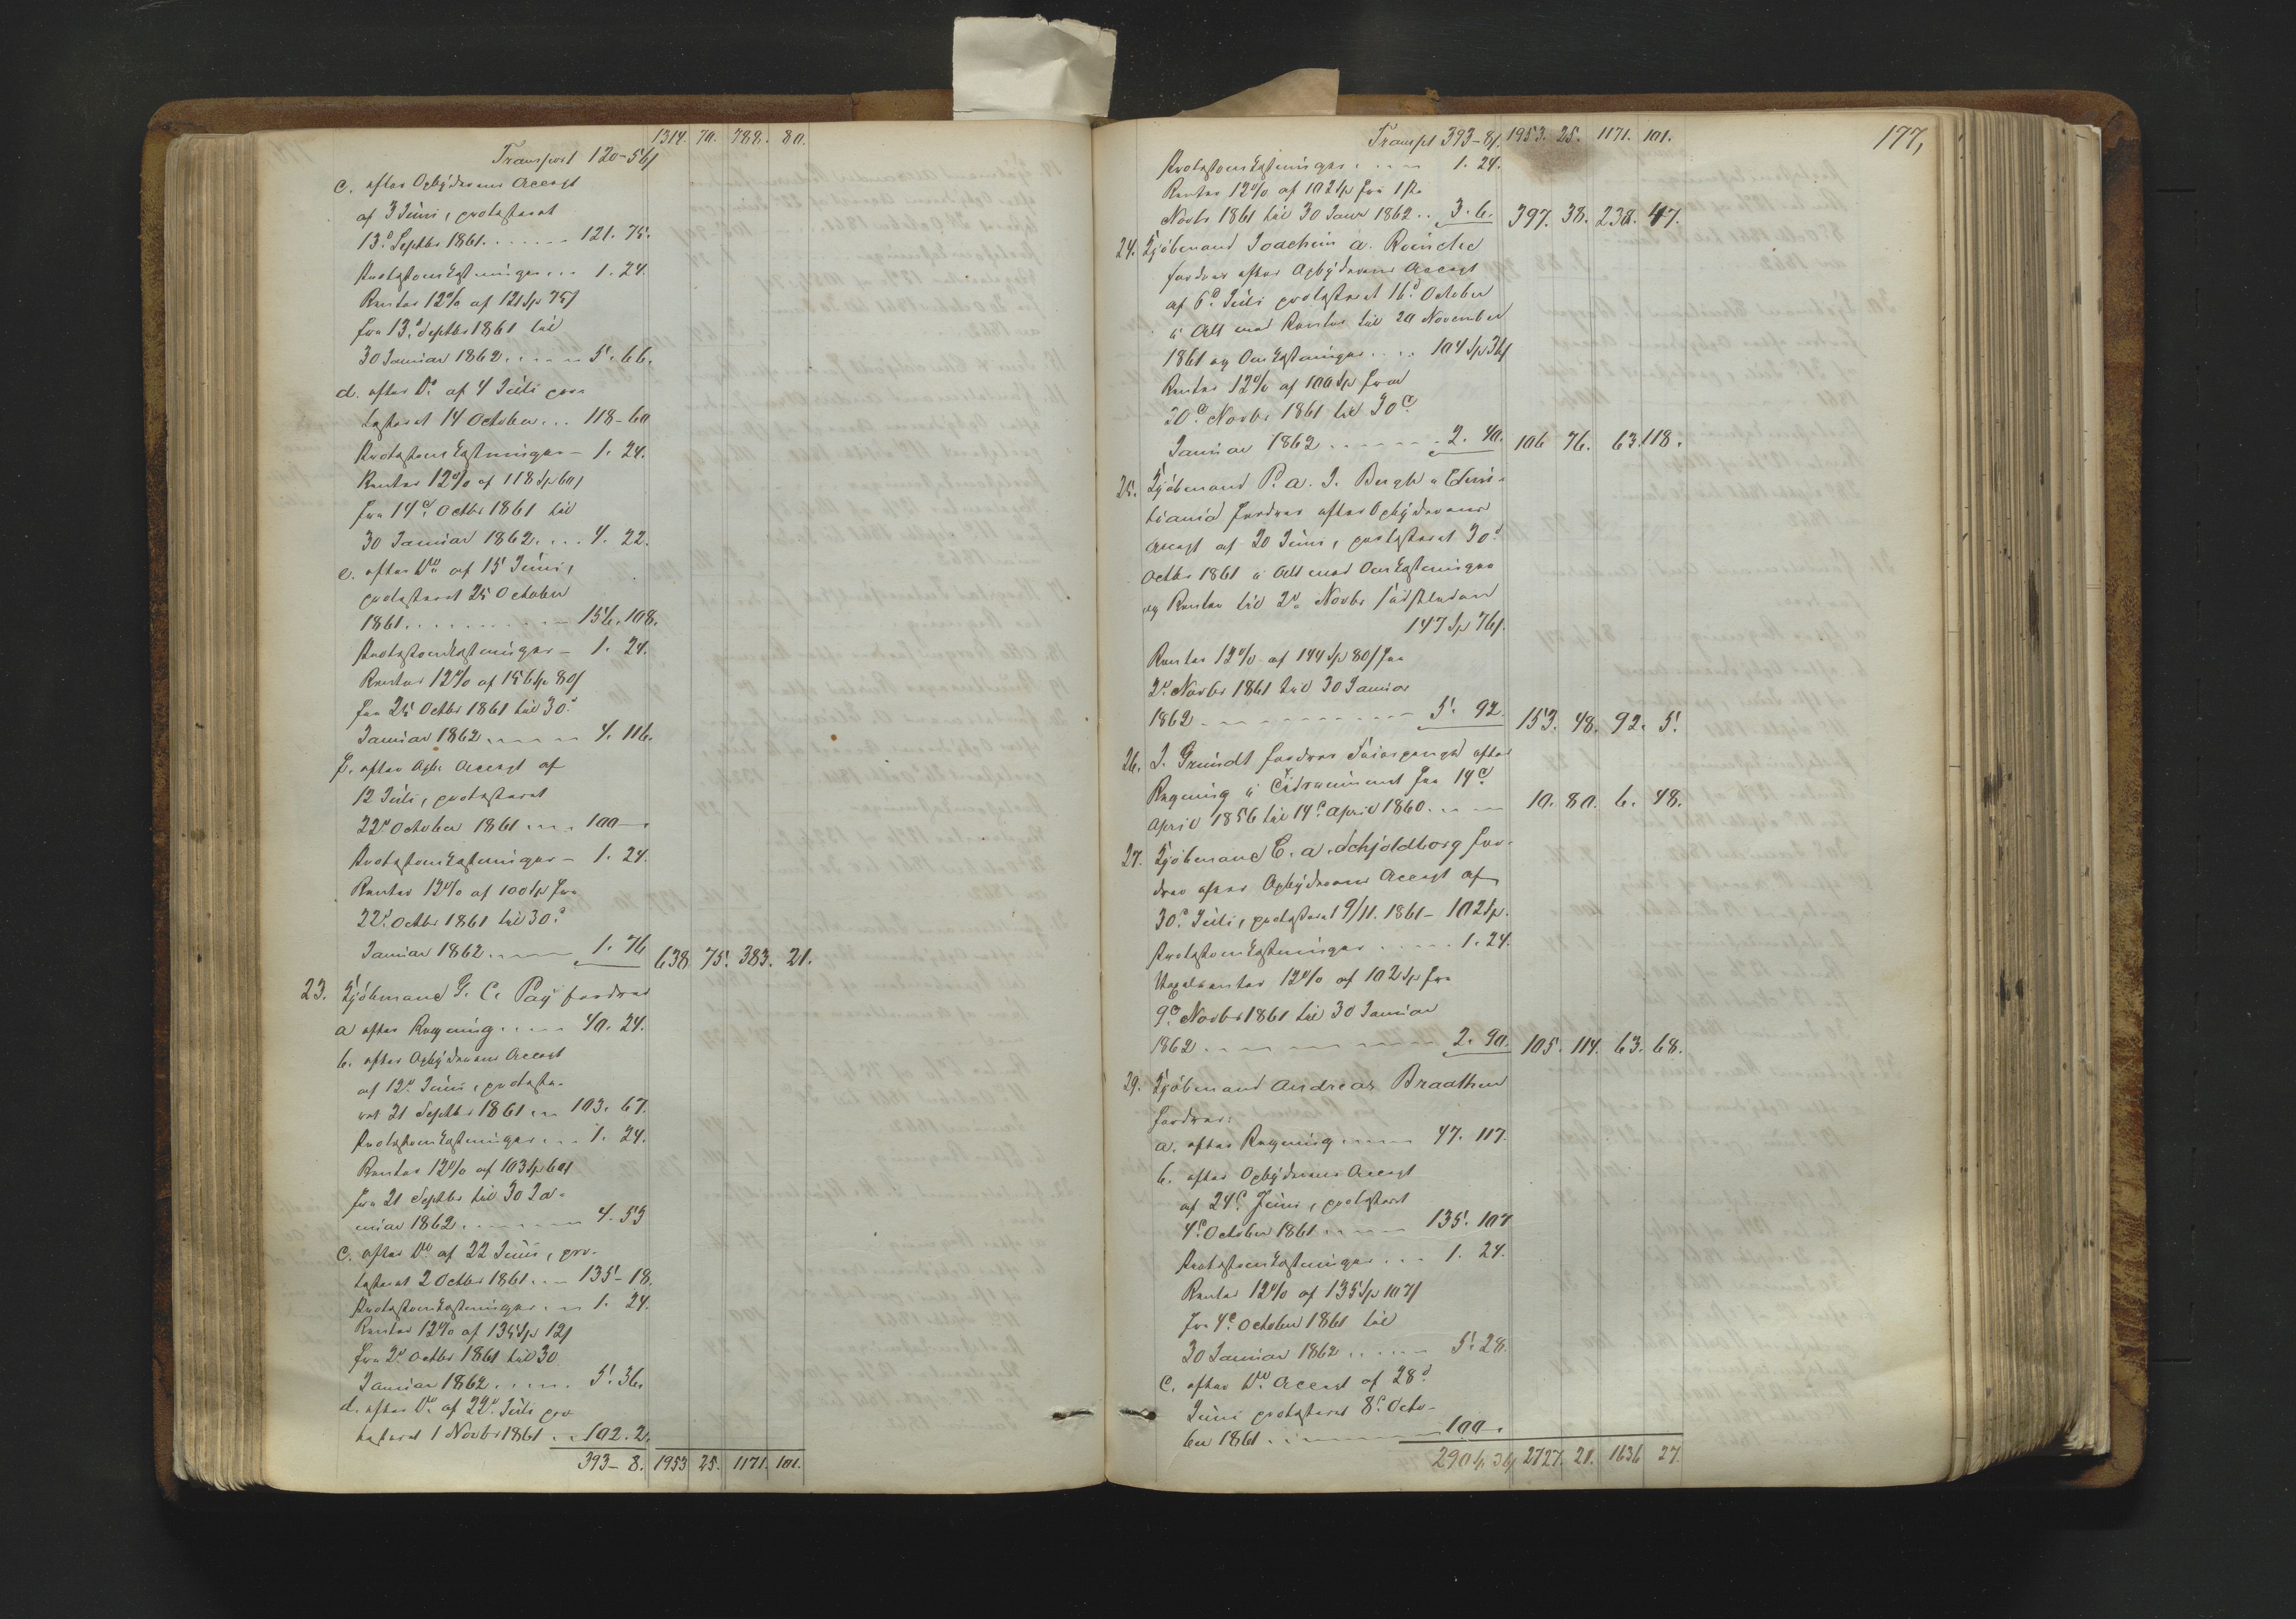 1314. 70. 788. 80.
Transport 120-56ß
c. efter Opbyderens Accept
af 3 Juni, protesteret
13d Septbr 1861. . . . . . 121. 75.
Protestomkostninger . . . 1. 24.
Renter 12% af 121 Sp 75ß
fra 13d Septbr 1861 til
30 Januar 1862. . . . . 5. 66.
d. efter Do af 4 Juli pro-
testeret 14 October . . . 118-60
Protestomkostninger - 1. 24.
Renter 12% af 118 Sp 60ß
fra 14d Octbr 1861 til
30 Januar 1862. . . . 4. 22.
e. efter Do af 15 Juni,
protesteret 25 October
1861. . . . . . . . . . 156. 108.
Protestomkostninger - 1. 24.
Renter 12% af 156 Sp 80ß
fra 25 Octbr 1861 til 30d
Januar 1862 . . . . . 4. 116.
f. efter Opb. Accept af
12 Juli, protesteret
22d October 1861 . . . . 100 - .
Protestomkostninger - 1. 24.
Renter 12% af 100 Sp fra
22d Octbr 1861 til 30d
Januar 1862 . . . . . 1. 76 638 75. 383. 21.
23. Kjöbmand G. C. Pay fordrer
a efter Regning . . . . . 40. 24.
b. efter Opbyderens Accept
af 12d Juni, proteste-
ret 21 Septbr 1861 . . . 103. 67.
Protestomkostninger . . . 1. 24.
Renter 12% af 103 Sp 60ß
fra 21 Septbr til 30 Ja-
nuar 1862. . . . . . . 4. 53
c. efter Do af 22 Juni, pro-
testeret 2 Octbr 1861 . . . 135-18.
Protestomkostninger . . . 1. 24.
Renter 12% af 135 Sp 12ß
fra 2d Octbr 1861 til 30
Januar 1862 . . . . . 5. 36.
d. efter Do af 22d Juli pro
testeret 1 Novbr 1861 . . . 102. 2.
393-8. 1953 25. 1171. 101.
177,
Transpt 393-8ß 1953. 25. 1171. 101.
Protestomkostninger . . . . . 1. 24.
Renter 12% af 102 Sp fra 1ste
Novbr 1861 til 30 Janr 1862 . . 3. 6. 397. 38. 238. 47.
24. Kjöbmand Joachim A. Reinche
fordrer efter Opbyderens Accept
af 6d Juli protesteret 16d October
i Alt med Renter til 20 November
1861 og Omkostninger . . . . 104 Sp 36ß
Renter 12% af 100 Sp fra
20d Novbr 1861 til 30d
Januar 1862 . . . . . . . 2. 40. 106 76. 63. 118.
25. Kjöbmand P. A. J. Bergh i Chris-
tiania fordrer efter Opbyderens
Accept af 20 Juni, protesteret 30d
Octbr 1861 i Alt med Omkostninger
og Renter til 2d Novbr sidstleden
147 Sp 76ß.
Renter 12% af 144 Sp 80ß fra
2d Novbr 1861 til 30 Januar
1862 . . . . . . . . . . . 5. 92. 153. 48. 92. 5.
26. J. Grundt fordrer efter
Regning i fra 14d
April 1856 til 14d April 1860 . . . . 10. 80. 6. 48.
27. Kjöbmand C. A. Schjoldborg for-
drer efter Opbyderens Accept af
30d Juli, protesteret 9/11. 1861 - 102 Sp.
Protestomkostninger . . . . . 1. 24.
Vexelrenter 12% af 102 Sp fra
9d Novbr 1861 til 30 Januar
1862 . . . . . . . . . . . 2. 90. 105. 114. 63. 68.
29. Kjöbmand Andreas Braathen
fordrer:
a. efter Regning . . . . . 47. 117.
b. efter Opbyderens Accept
af 24d Juni, protesteret
4d October 1861 . . . . . 135. 107
Protestomkostninger . . . 1. 24.
Renter 12% af 135 Sp 107ß
fra 4d October 1861 til
30 Januar 1862 . . . . . . 5. 28.
c. efter Do Accept af 28d
Juni protesteret 8d Octo-
ber 1861 . . . . . . . . 100 - .
290 Sp 36ß 2727. 21. 1636 27.